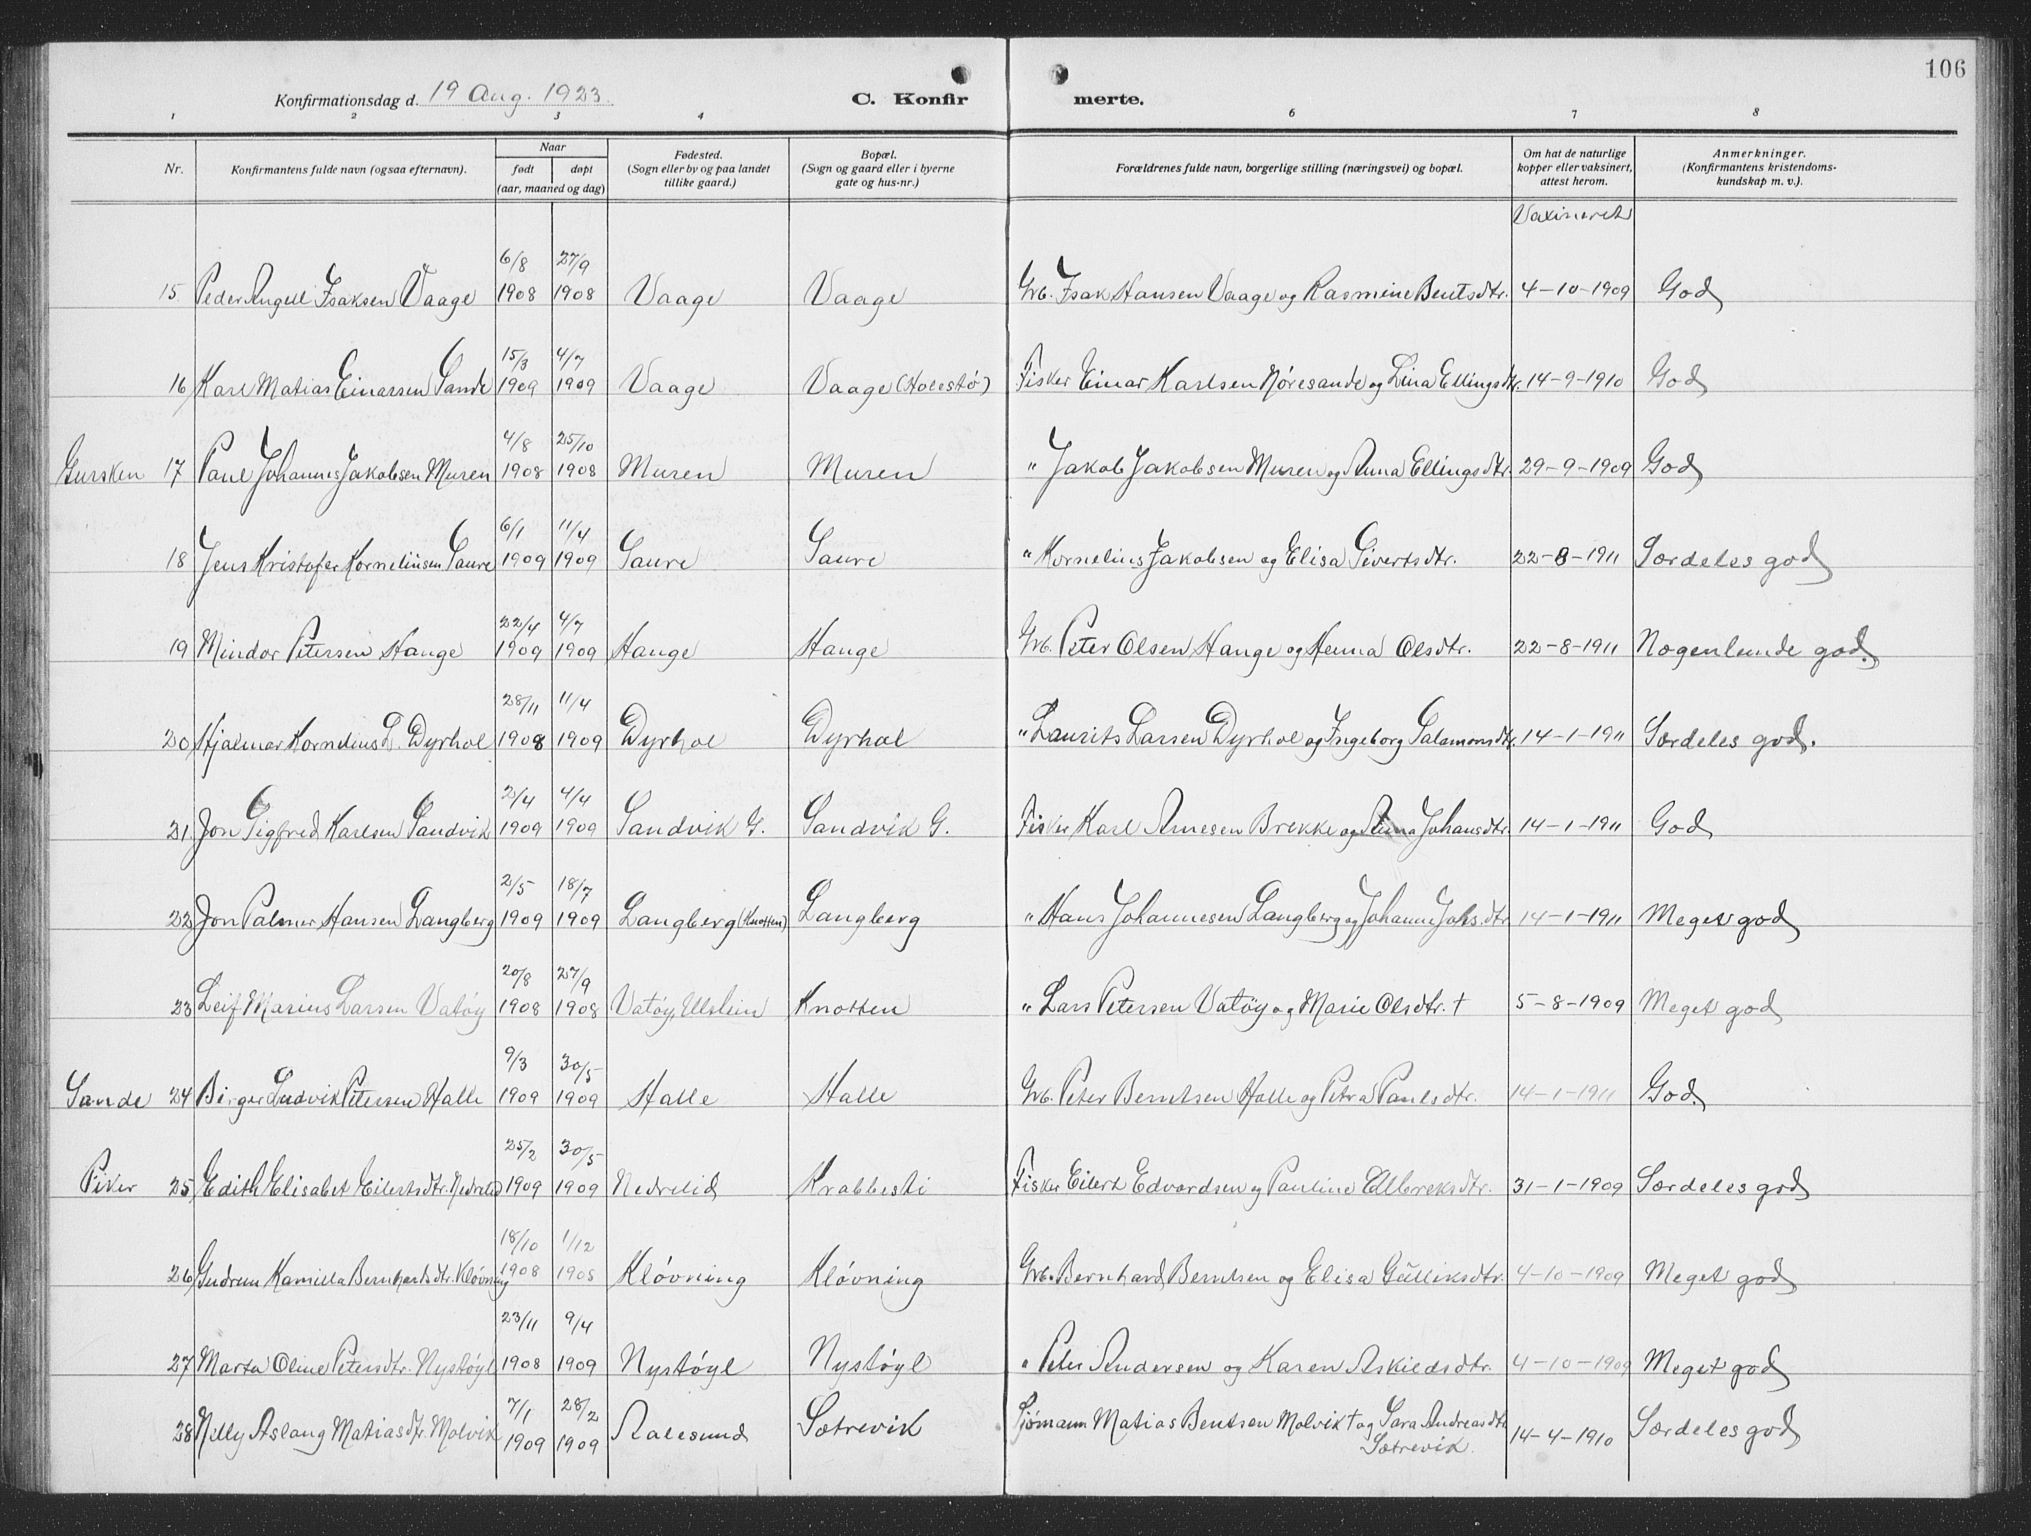 106
Konfirmationsdag d. 19 Aug. 1923.
C. Konfir merte.
1 2 3 4 6 7 8
Nr. Konfirmantens fulde navn (ogsaa efternavn). Naar født døpt (aar, maaned og dag) Fødested. (Sogn eller by og paa landet tillike gaard.) Bopæl. (Sogn og gaard eller i byerne gate og hus-nr.) Forældrenes fulde navn, borgerlige stilling (næringsvei) og bopæl. Om hat de naturlige kopper eller vaksinert, attest herom. Anmerkninger. (Konfirmantens kristendoms-kundskap m. v.).
Vaxineret
15 Peder Angell Isaksen Vaage 6/8 1908 27/9 1908 Vaage Vaage Grb. Isak Hansen Vaage og Rasmine Bentsdtr. 4-10-1909 God
16 Karl Matias Einarsen Sande 15/3 1909 4/7 1909 Vaage Vaage (Holestø) Fisker Einar Karlsen Nøresande og Lina Ellingsdtr. 14-9-1910 God
Gursken 17 Paul Johannes Jakobsen Muren 4/8 1908 25/10 1908 Muren Muren " Jakob Jakobsen Muren og Anna Ellingsdtr. 29-9-1909 God
18 Jens Kristofer Korneliusen Saure 6/1 1909 11/4 1909 Saure Saure " Kornelius Jakobsen og Elisa Sivertsdtr. 22-8-1911 Særdeles god
19 Mindor Petersen Hauge 22/4 1909 4/7 1909 Hauge Hauge Grb. Peter Olsen Hauge og Henna Olsdtr. 22-8-1911 Nogenlunde god.
20 Hjalmar Kornelius L. Dyrhol 28/11 1908 11/4 1909 Dyrhol Dyrhol " Laurits Larsen Dyrhol og Ingeborg Salamonsdtr. 14-1-1911 Særdeles god.
21. Jon Sigfred Karlsen Sandvik 2/4 1909 4/4 1909 Sandvik G. Sandvik G. Fisker Karl Arnesen Brekke og Anna Johansdtr. 14-1-1911 God
22 Jon Palmer Hansen Langberg 2/5 1909 18/7 1909 Langberg (Knotten) Langberg " Hans Johannesen Langberg og Johanne Johs.dtr. 14-1-1911 Meget god
23 Leif Marius Larsen Vatøy 20/8 1908 27/9 1908 Vatøy, Ulstein Knotten " Lars Petersen Vatøy og Marie Olsdtr. † 5-8-1909 Meget god
Sande 24 Birger Ludvik Petersen Halle 9/3 1909 30/5 1909 Halle Halle Grb. Peter Berntsen Halle og Petra Paulsdtr. 14-1-1911 God.
Piker 25 Edith Elisabet Eilertsdtr. Nedrelid 25/2 1909 30/5 1909 Nedrelid Krabbesti Fisker Eilert Edvardsen og Pauline Elbreksdtr. 31-1-1909 Særdeles god
26 Gudrun Kamilla Bernhardsdtr. Kløvning 18/10 1908 1/12 1908 Kløvning Kløvning Grb. Bernhard Berntsen og Elisa Gulliksdtr. 4-10-1909 Meget god
27 Marta Oline Petersdtr. Nystøyl 23/11 1908 9/4 1909 Nystøyl Nystøyl " Peter Andersen og Karen Askildsdtr. 4-10-1909 Meget god
28 Nelly Aslaug Matiasdtr. Molvik 7/1 1909 28/2 1909 Aalesund Sætrevik Sjømann Matias Bentsen Molvik † og Sara Andreasdtr. Sætrevik. 14-4-1910 Særdeles god